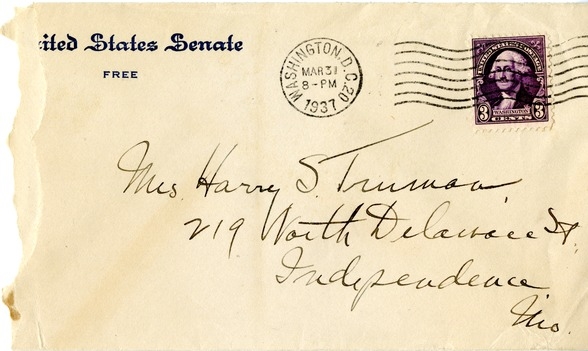 ited States Senate
FREE
WASHINGTON, D.C. 20
MAR 31
8-PM
1937
UNITED STATES POSTAGE
3 WASHINGTON 3
CENTS
Mrs. Harry S. Truman
219 North Delaware St.
Independence
Mo.